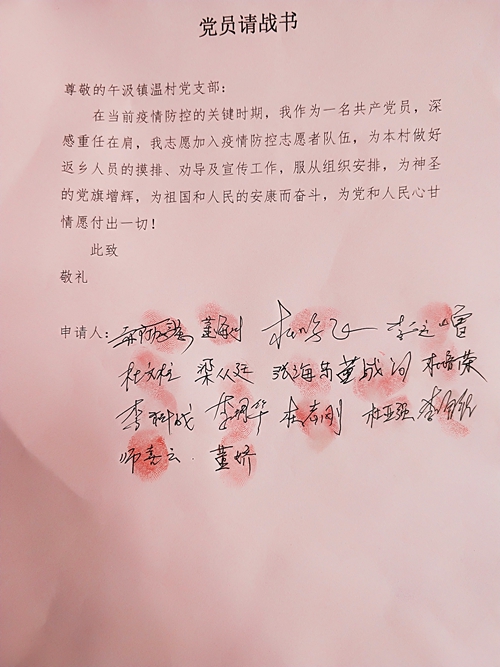 党员请战书
尊敬的午汲镇温村党支部：
在当前疫情防控的关键时期，我作为一名共产党员，深
感重任在肩，我志愿加入疫情防控志愿者队伍，为本村做好
返乡人员的摸排、劝导及宣传工作，服从组织安排，为神圣
的党旗增辉，为祖国和人民的安康而奋斗，为党和人民心甘
情愿付出一切！
此致
敬礼
申请人：
杜文柱 梁从廷 张海 董战 杜榮
李科战 李 华 杜志刚 杜亚强 李
师喜云 董娇